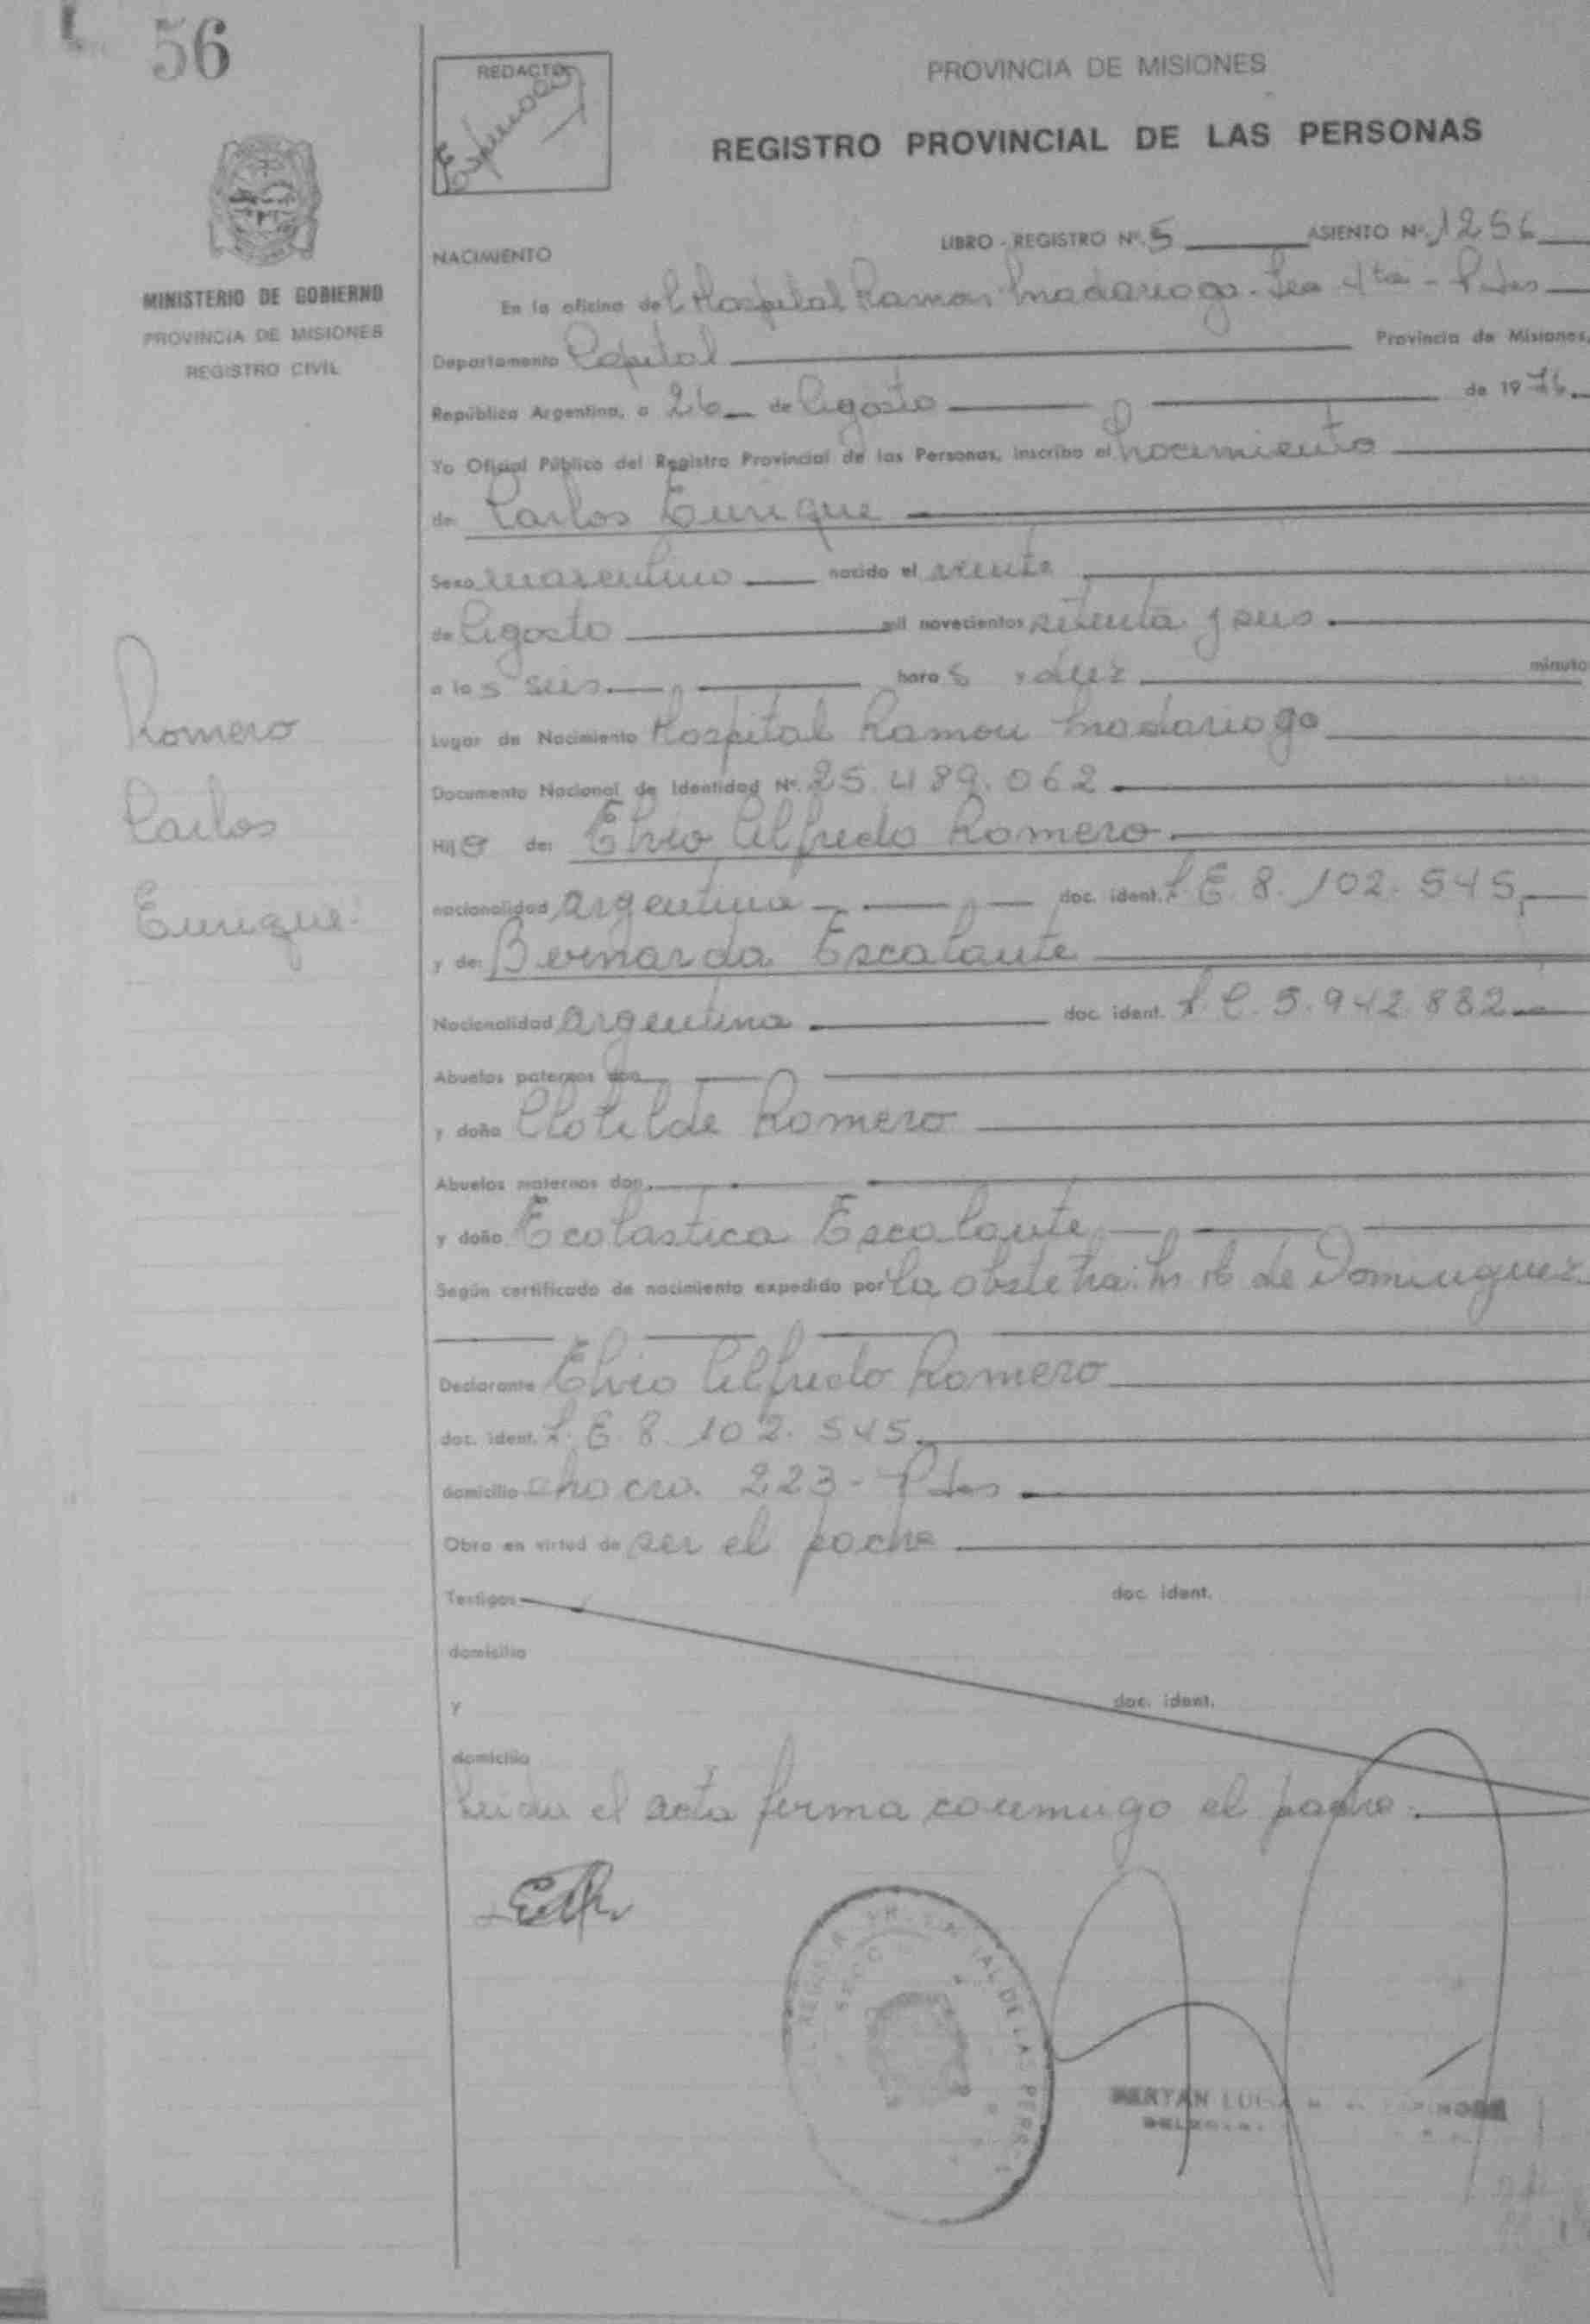 56
REDACTO
PROVINCIA DE MISIONES
REGISTRO PROVINCIAL DE LAS PERSONAS
MINISTERIO DE GOBIERNO
PROVINCIA DE MISIONES
REGISTRO CIVIL
LIBRO - REGISTRO Nº. 5 ASIENTO Nº. 1256
NACIMIENTO
En la oficina del Hospital Ramon Madariaga - Sec 4ta - Pdas
Departamento Capital Provincia de Misiones,
República Argentina, a 26 de Agosto de 1976
Yo Oficial Público del Registro Provincial de las Personas, inscribo el nacimiento
de Carlos Enrique
Sexo masculino nacido el veinte
de Agosto mil novecientos setenta y seis
a las seis horas y diez minuto
Lugar de Nacimiento Hospital Ramon Madariaga
Documento Nacional de Identidad Nº. 25.489.062
Hijo de: Elvio Alfredo Romero
nacionalidad argentina doc. ident. L.E. 8.102.545
y de: Bernarda Escalante
Nacionalidad argentina doc. ident. L.C. 5.942.882
Abuelos paternos don
y doña Clotilde Romero
Abuelos maternos don
y doña Ecolastica Escalante
Según certificado de nacimiento expedido por la obstetra: de Dominguez
Declarante Elvio Alfredo Romero
doc. ident. L.E. 8.102.545
domicilio chacra. 223 - Pdas
Obra en virtud de ser el padre
Testigos doc. ident.
domicilio
y doc. ident.
domicilio
Leida el acta firma conmigo el padre.
Romero
Carlos
Enrique